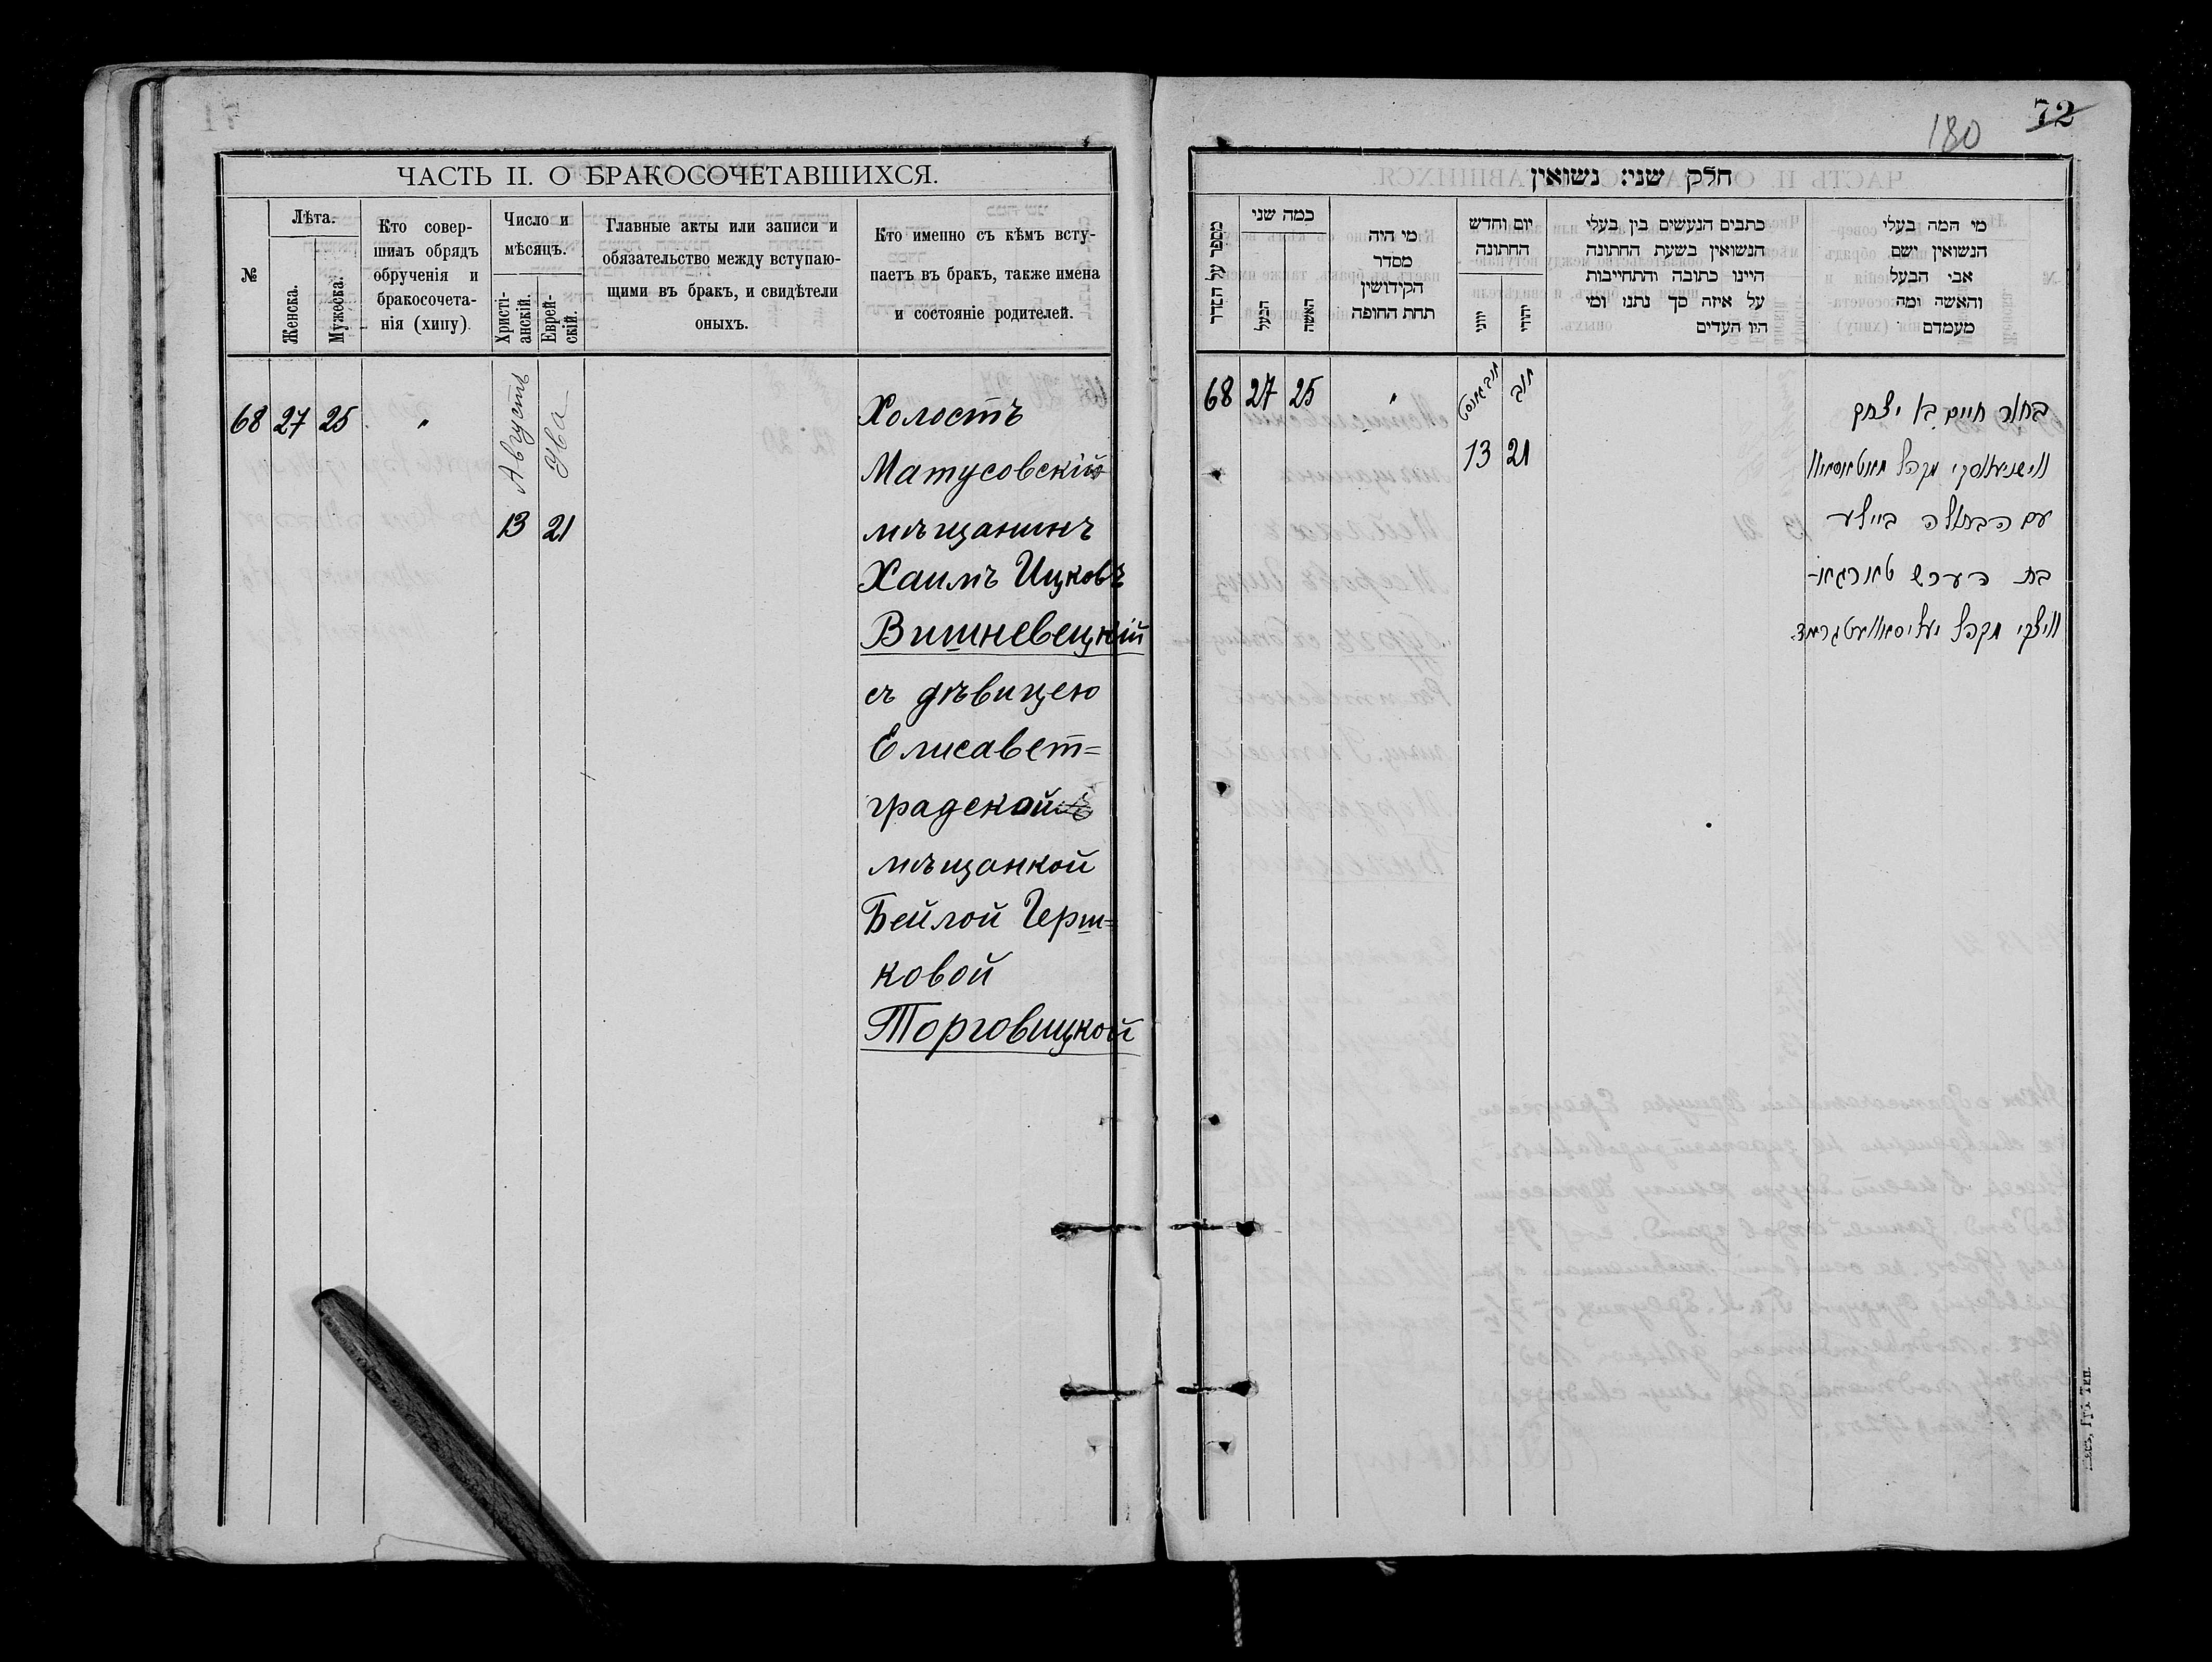 ЧАСТЬ II. О БРАКОСОЧЕТАВШИХСЯ.
№
Лѣта.
Женска.
Мужеска.
Кто совер-
шилъ обрядъ
обрученія и
бракосочета-
нія (хипу).
Число и
мѣсяцъ.
Христі-
анскій.
Еврей-
скій.
Главные акты или записи и
обязательство между вступаю-
щими въ бракъ, и свидѣтели
оныхъ.
Кто именно съ кѣмъ всту-
паетъ въ бракъ, также имена
и состояніе родителей.
68 27 25 "
Августъ
13
Ува
21
Холостъ
Матусовскій
мѣщанинъ
Хаимъ Ицковъ
Вишневецкій
съ дѣвицею
Елисавет=
градской
мѣщанкой
Бейлой Герш=
ковой
Торговицкой
180
72
חלק שני: נשואין
מספר על הסדר
כמה שני
הבעל
האשה
מי היה
מסדר
הקידושין
תחת החופה
יום וחדש
החתונה
יוני
יהודי
כתבים הנעשים בין בעלי
הנשואין בשעת החתונה
היינו כתובה והתחייבות
על איזה סך נתנו ומי
היו העדים
מי המה בעלי
הנשואין ושם
אבי הבעל
והאשה ומה
מעמדם
68 27 25 "
אווגוסט
13
אוב
21
בחור חיים בן יצחק
ווישניעווסקי מקהל
עם הבתולה ביילע
בת הערש טארגא-
וויצקי מקהל יעליסאוועטגראד.